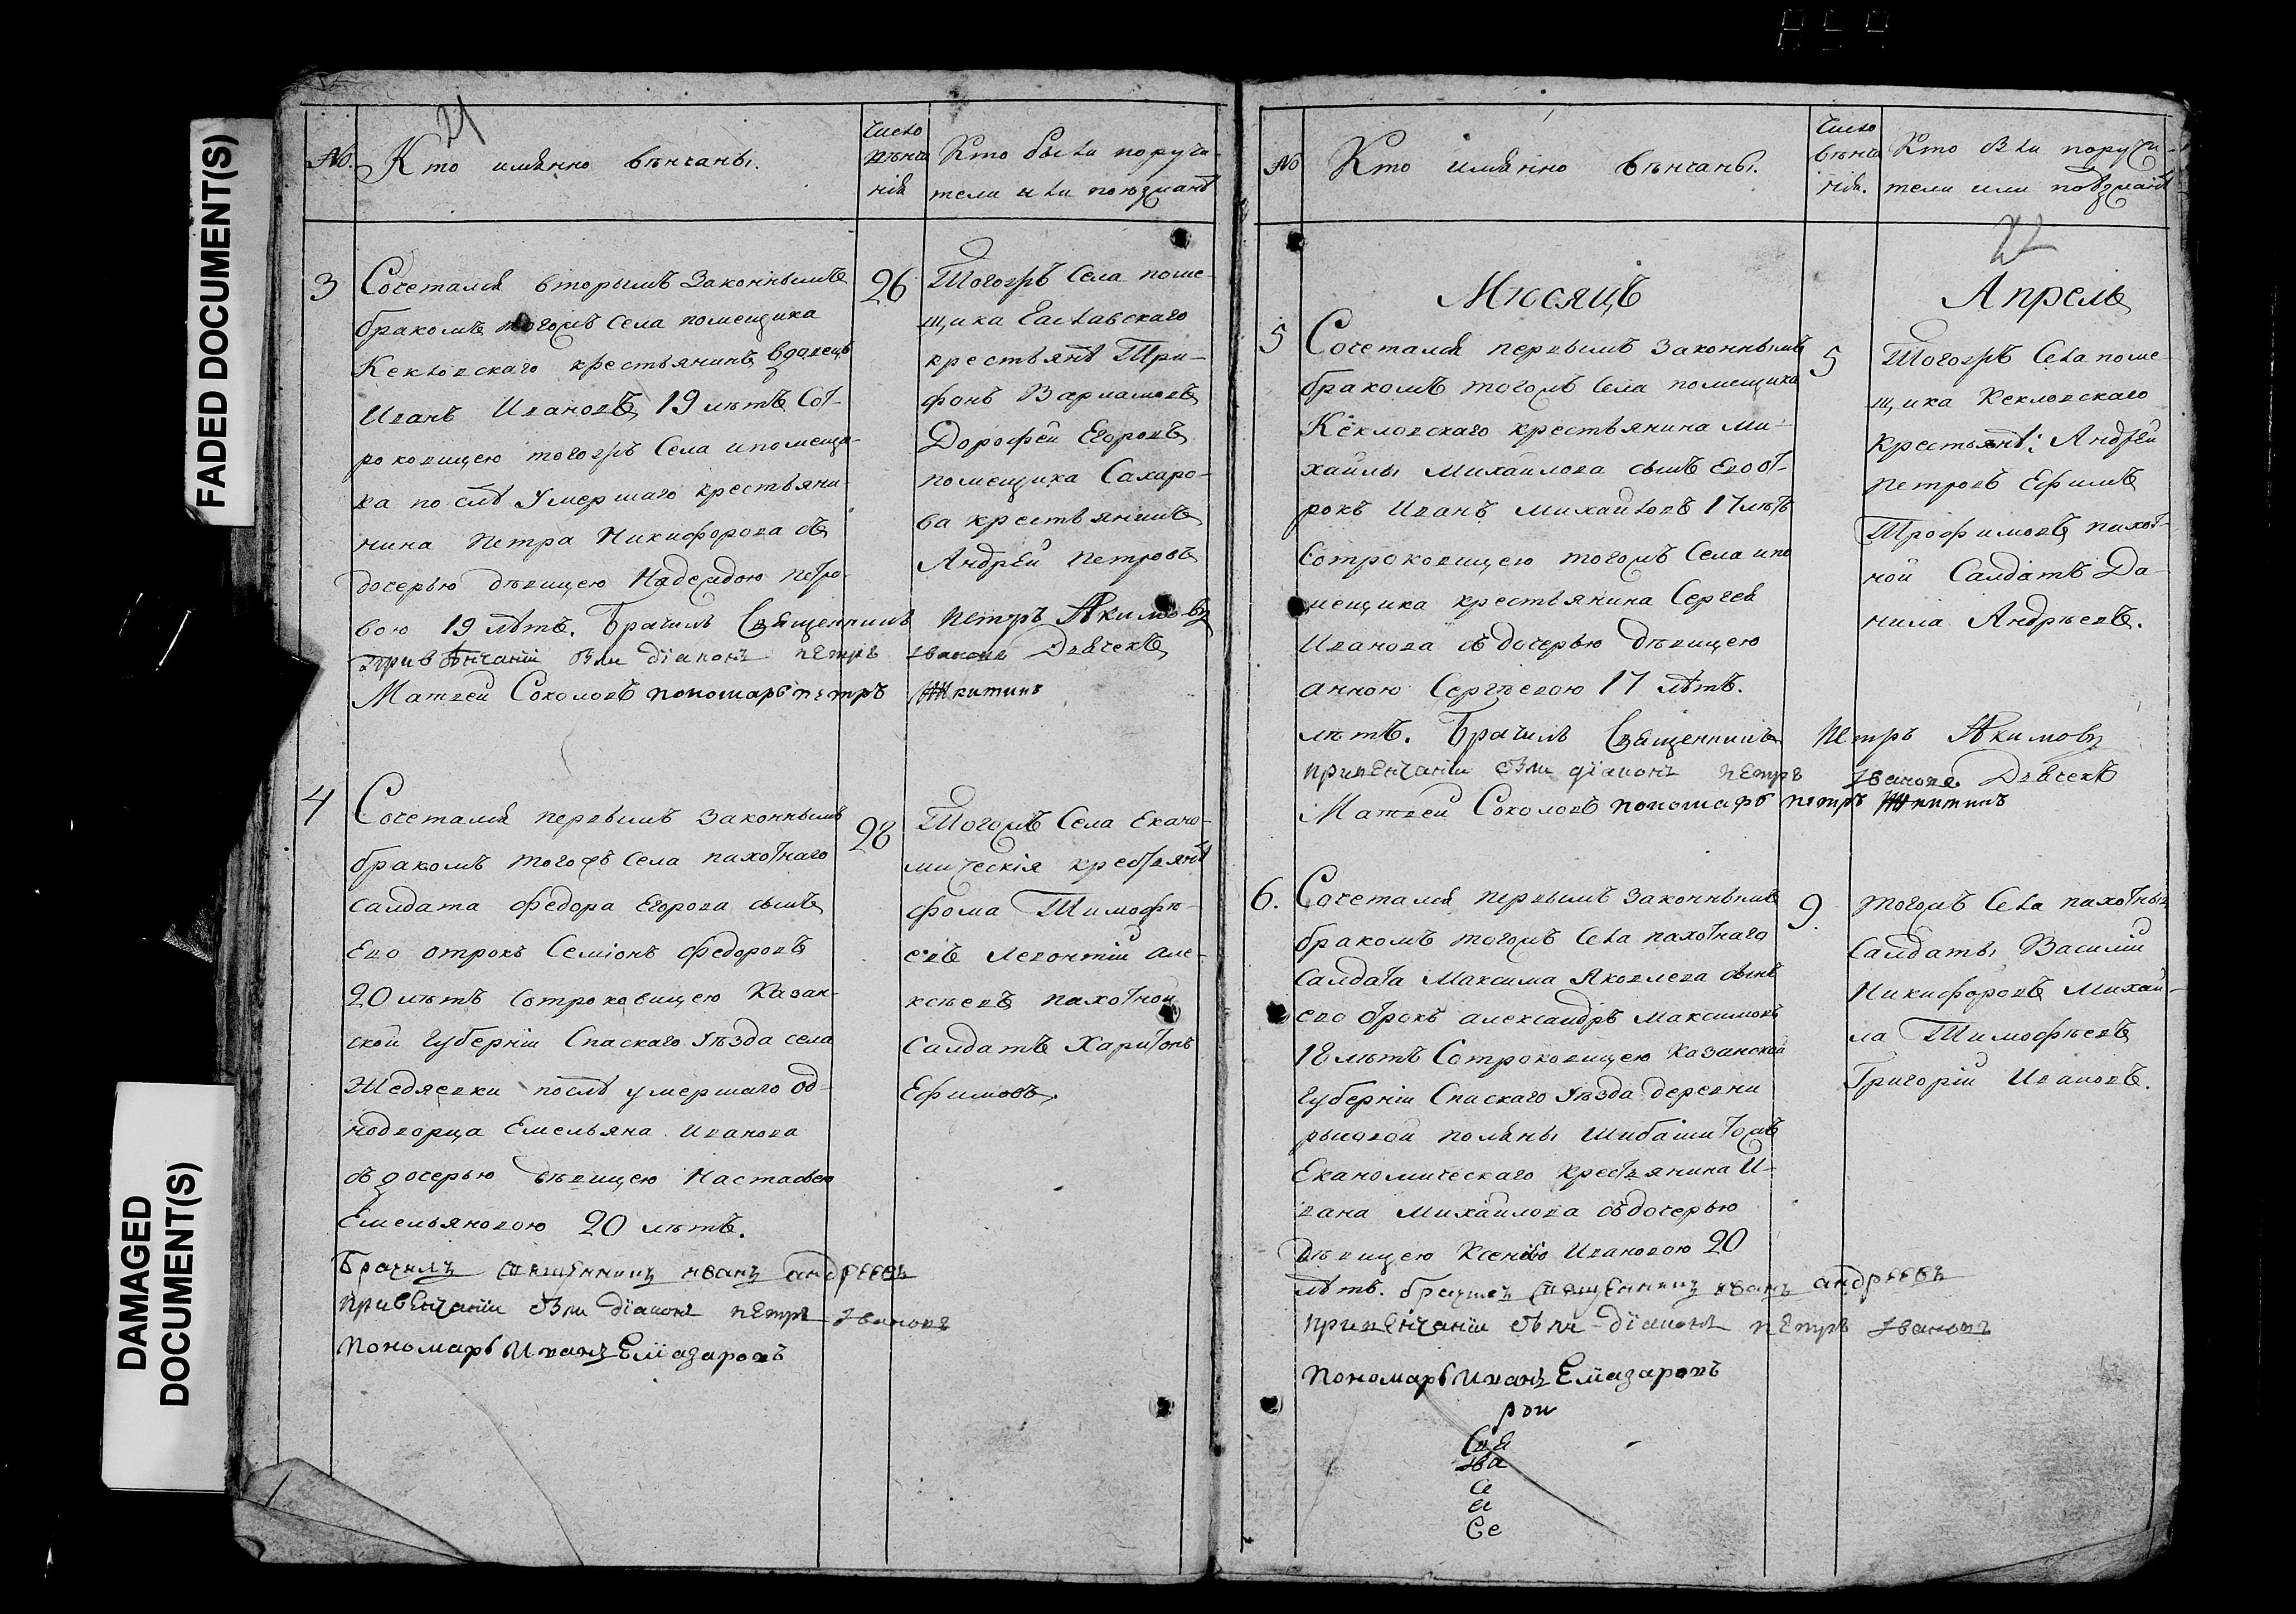 FADED DOCUMENT(S)
DAMAGED DOCUMENT(S)
21
No.
Кто имянно вѣнчаны.
Число
вѣнча
нія
Кто были поручи-
тели или поѣзжанѣ
3
Сочетался вторымъ законнымъ
бракомъ тогожъ села помещика
Кекловскаго крестьянинъ вдовецъ
Иванъ Ивановъ 19 лѣтъ Сот-
роковицею тогожъ Села и помещи-
ка послѣ умершаго крестьяни-
нина Петра Никифорова съ
дочерью дѣвицею Надеждою Петро-
вою 19 лѣтъ. Брачилъ Священникъ Петръ Акимовъ
при вѣнчаніи были діаконъ петръ ивановъ Дьячекъ
Матвей Соколовъ пономарь петръ Никитинъ
26
Тогожъ Села поме-
щика
крестьянѣ Три-
фонъ Варламовъ
Дорофей Егоровъ
помещика Сахаро-
ва крестьянинъ
Андрей Петровъ
4
Сочетался первымъ законнымъ
бракомъ тогожъ Села пахотнаго
салдата Федора Егорова сынъ
Ево отрокъ Семіонъ Федоровъ
20 лѣтъ Сотроковицею Казан-
ской Губерніи Спаскаго уѣзда села
послѣ умершаго од-
нодворца Емельяна Иванова
съ дочерью дѣвицею Настасьею
Емельяновою 20 лѣтъ.
Брачилъ священникъ иванъ андреевъ
при венчаніи были діаконъ петръ ивановъ
Пономарь Иванъ Еліазаровъ
28
Тогожъ Села Екано-
мическія крестьянѣ
Фома Тимофѣ-
евъ Леонтій Але-
ксѣевъ пахотной
Салдатъ Харитонъ
Ефимовъ.
No
Кто имянно вѣнчаны.
Число
вѣнча
нія.
Кто были поручи-
тели или поѣзжанѣ
22
Мѣсяцъ Апрель
5
Сочетался первымъ законнымъ
бракомъ тогожъ Села помещика
Кекловскаго крестьянина Ми-
хайлы Михайлова сынъ Ево от-
рокъ Иванъ Михайловъ 17 лѣтъ
Сотроковицею тогожъ Села и по
мещика крестьянина Сергея
Иванова съ дочерью дѣвицею
анною Сергѣевою 17 лѣтъ.
лѣтъ. Брачилъ Священникъ Петръ Акимовъ
при венчаніи были діаконъ петръ ивановъ Дьячекъ
Матвей Соколовъ пономарь петръ Никитинъ
5
Тогожъ Села поме-
щика Кекловскаго
Крестьянѣ: Андрей
Петровъ Ефимъ
Трофимовъ пахот-
ной Салдатъ Да-
нила Андрѣевъ.
6.
Сочетался первымъ законнымъ
бракомъ тогожъ Села пахотнаго
Салдата Максима Яковлева сынъ
ево отрокъ александръ Максимовъ
18 лѣтъ Сотроковицею Казанской
Губерніи Спаскаго уѣзда деревни
поляны тожъ
Економическаго Крестьянина И-
вана Михайлова съ дочерью
дѣвицею Ксеніею Ивановою 20
лѣтъ. брачилъ священникъ иванъ андреевъ
при венчаніи были діаконъ петръ ивановъ
Пономарь Иванъ Еліазаровъ
9.
тогожъ Села пахотныя
Салдаты Василій
Никифоровъ Михай-
ла Тимофѣевъ
Григорій Ивановъ.
Се
Се